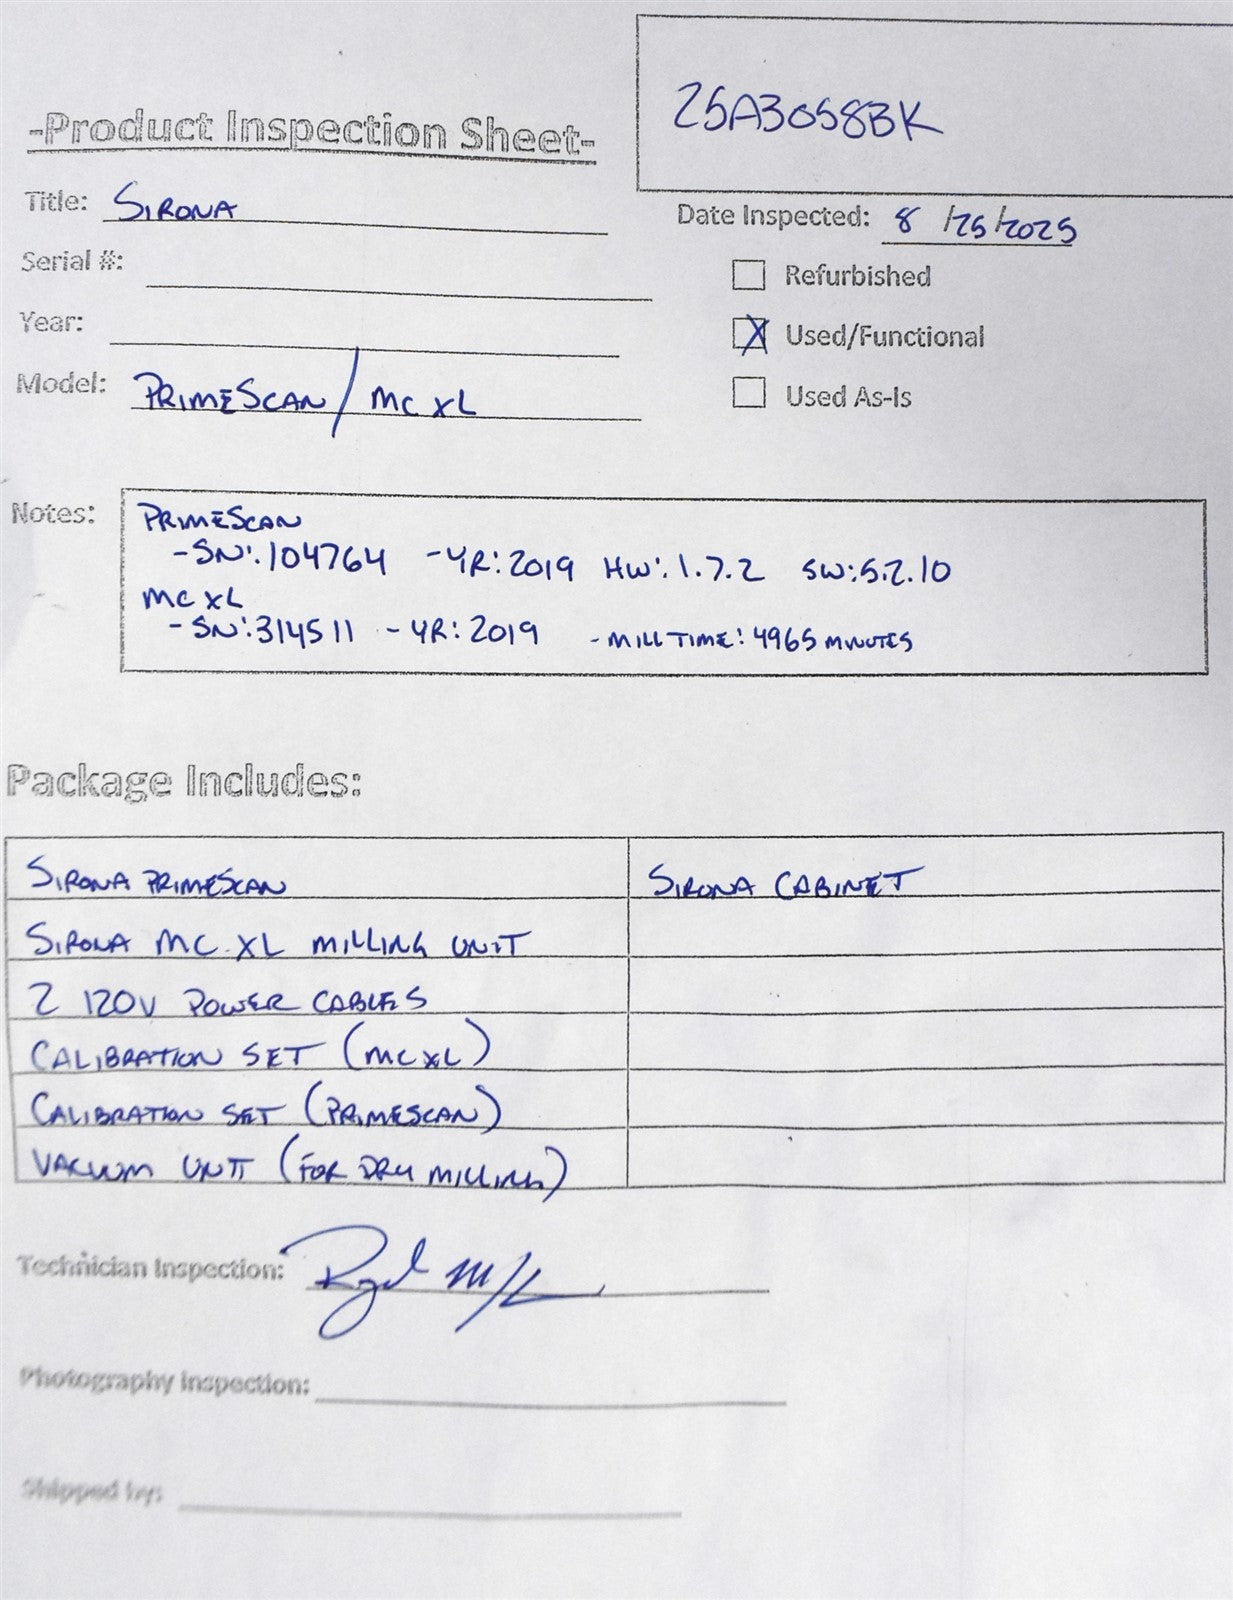 25A3058BK
-Product Inspection Sheet-
Title: SIRONA
Date Inspected: 8 /25/2025
Serial #:
Refurbished
Year:
X Used/Functional
Model: PRIMESCAN / MC XL
Used As-Is
Notes: PRIMESCAN
-SN:104764 -YR:2019 HW:1.7.2 SW:5.2.10
MC XL
-SN:314511 -YR:2019 -MILL TIME: 4965 MINUTES
Package Includes:
SIRONA PRIMESCAN SIRONA CABINET
SIRONA MC XL MILLING UNIT
2 120V POWER CABLES
CALIBRATION SET (MCXL)
CALIBRATION SET (PRIMESCAN)
VACUUM UNIT (FOR DRY MILLING)
Technician Inspection:
Photography Inspection:
Shipped by: